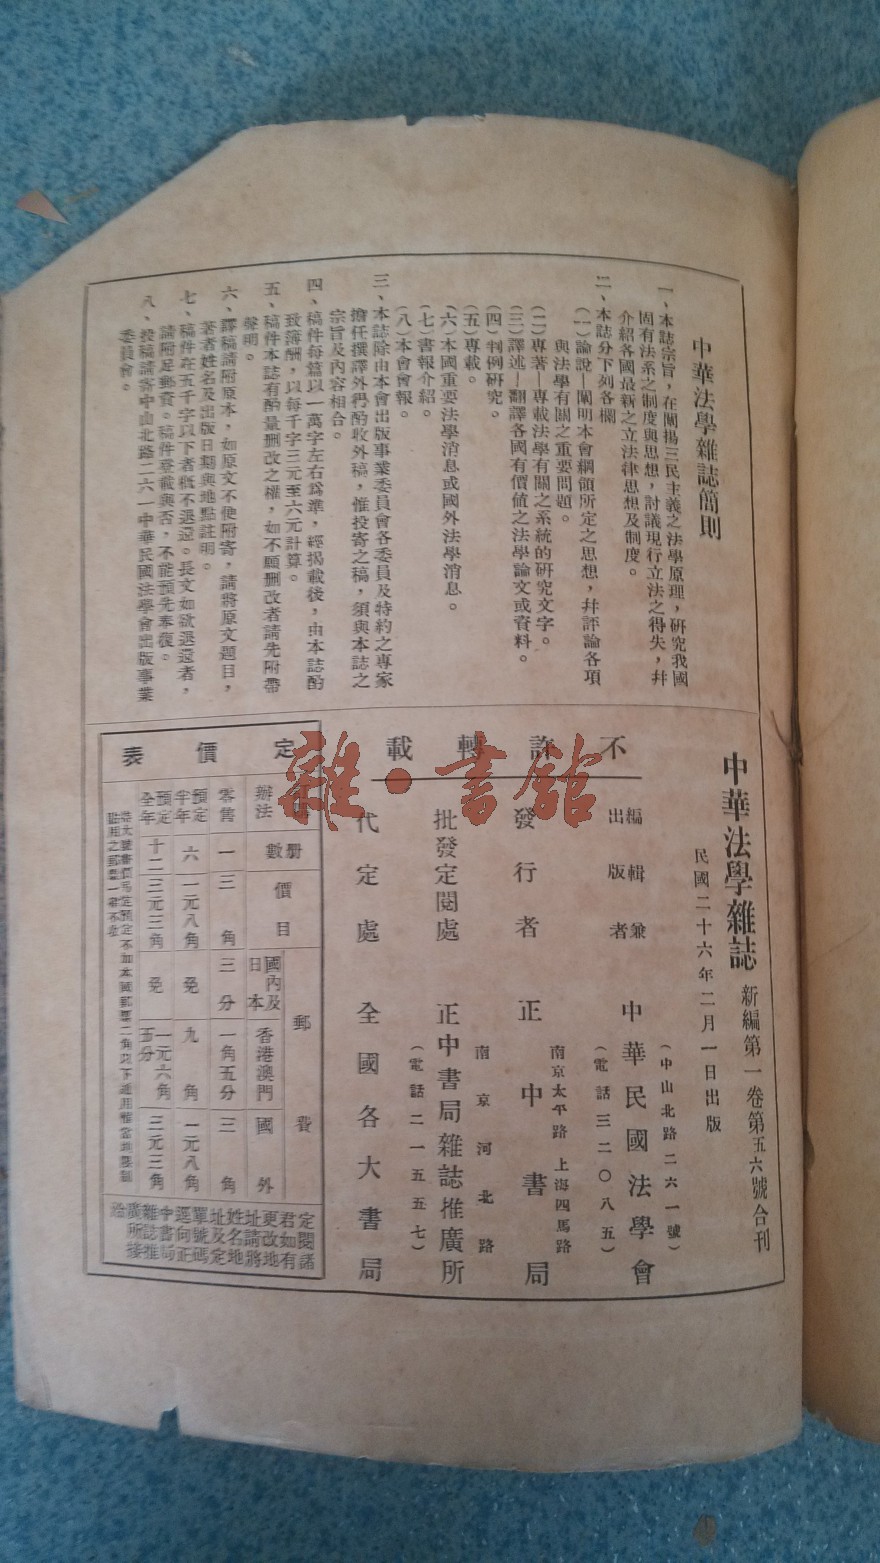 中華法學雜誌簡則
一、本誌宗旨，在闡揚三民主義之法學原理，研究我國
固有法系之制度與思想，討議現行立法之得失，幷
介紹各國最新之立法律思想及制度。
二、本誌分下列各欄
(一)論說—闡明本會綱領所定之思想，幷評論各項
與法學有關之重要問題。
(二)專著—專載法學有關之系統的研究文字。
(三)譯述—翻譯各國有價值之法學論文或資料。
(四)判例研究。
(五)專載。
(六)本國重要法學消息或國外法學消息。
(七)書報介紹。
(八)本會會報。
三、本誌除由本會出版事業委員會各委員及特約之專家
擔任撰譯外得酌收外稿，惟投寄之稿，須與本誌之
宗旨及內容相合。
四、稿件每篇以一萬字左右爲準，經揭載後，由本誌酌
致薄酬，以每千字三元至六元計算。
五、稿件本誌有酌量刪改之權，如不願刪改者請先附帶
聲明。
六、譯稿請附原本，如原文不便附寄，請將原文題目，
著者姓名及出版日期與地點註明。
七、稿件在五千字以下者槪不退還。長文如欲退還者，
請附足郵費。稿件登載與否，不能預先奉復。
八、投稿請寄中山北路二六一中華民國法學會出版事業
委員會。
中華法學雜誌 新編第一卷第五六號合刊
民國二十六年二月一日出版
不許轉載
編輯兼出版者 中華民國法學會
(中山北路二六一號)
(電話三二〇八五)
發行者 正中書局
南京太平路 上海四馬路
批發定閱處 正中書局雜誌推廣所
南京河北路
(電話二一五五七)
代定處 全國各大書局
定價表
辦法 冊數 價目 郵費
國內及日本 香港澳門 國外
零售 一 三角 三分 一角五分 三角
預定半年 六 一元八角 免 九角 一元八角
預定全年 十二 三元三角 免 一元六角五分 三元三角
定閱諸
君如有
更改地
址請將
姓名地
址及定
單號碼
逕向正
中書局
雜誌推
廣所接
洽
雜·書館